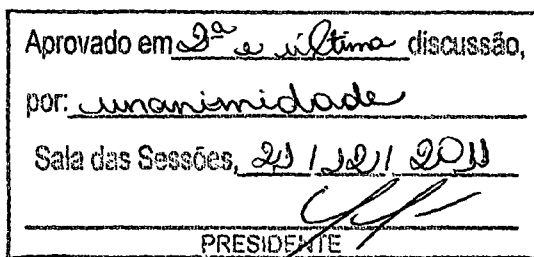 Aprovado em 2ª e última discussão,
por: unanimidade
Sala das Sessões, 21 / 12 / 2011
PRESIDENTE